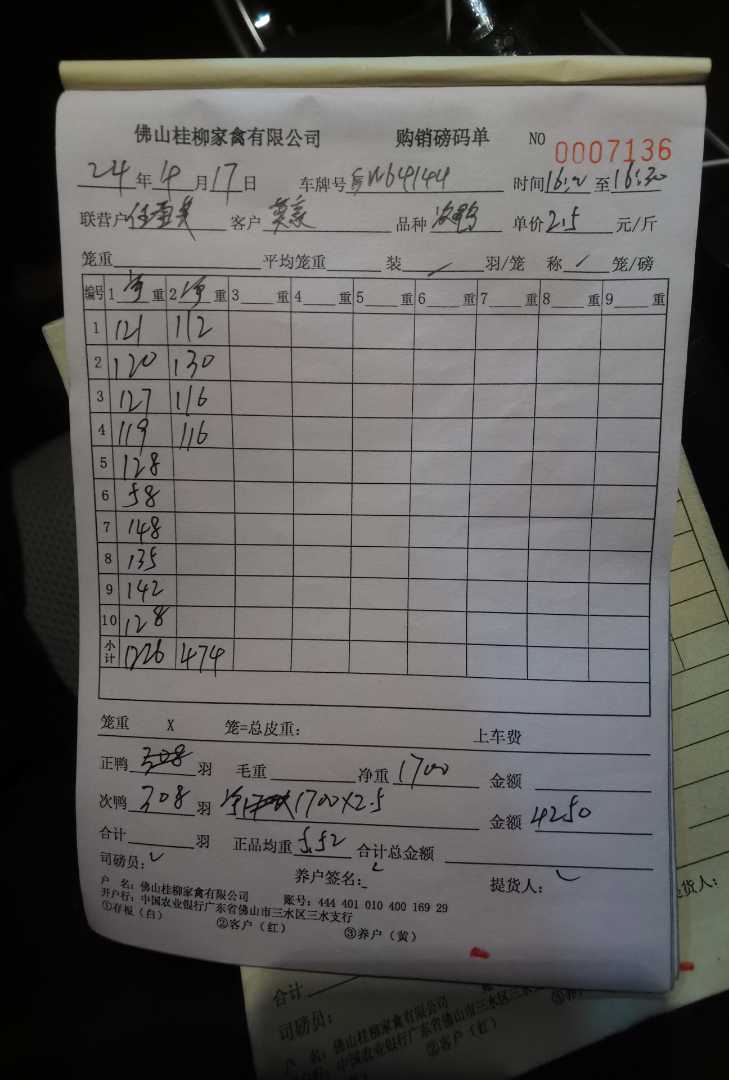 佛山桂柳家禽有限公司 购销磅码单 NO 0007136
24年4月17日 车牌号 64144 时间16: 至16:30
联营户 客户 品种 单价2.5元/斤
笼重 平均笼重 装 / 羽/笼 称 / 笼/磅
编号 1净重 2净重 3 重 4 重 5 重 6 重 7 重 8 重 9 重
1 121 112
2 120 130
3 127 116
4 119 116
5 128
6 58
7 148
8 135
9 142
10 128
小计 1226 474
笼重 X 笼=总皮重: 上车费
正鸭 308 羽 毛重 净重1700 金额
次鸭 308 羽 净 1700X2.5 金额 4250
合计 羽 正品均重 5.52 合计总金额
司磅员: 养户签名: 提货人:
户 名: 佛山桂柳家禽有限公司 账号: 444 401 010 400 169 29
开户行: 中国农业银行广东省佛山市三水区三水支行
①存根(白) ②客户(红) ③养户(黄)
货人:
合计
司磅员:
户 名: 佛山桂柳家禽有限公司
开户行: 中国农业银行广东省佛山市三水区三水
②客户(红)